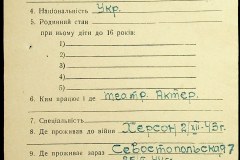 4. Національність Укр.
5. Родинний стан
при ньому діти до 16 років:
1)
2)
3)
4)
5)
6. Ким працює і де театр. Актер.
7. Спеціяльність
8. Де проживав до війни Херсон 2/XII-43г.
9. Де проживає зараз Севостопольская 7